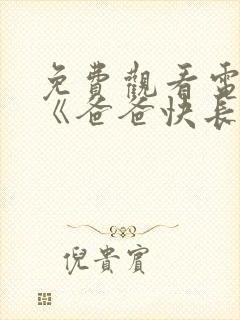 免費觀看電
《爸爸快長
倪貴賓